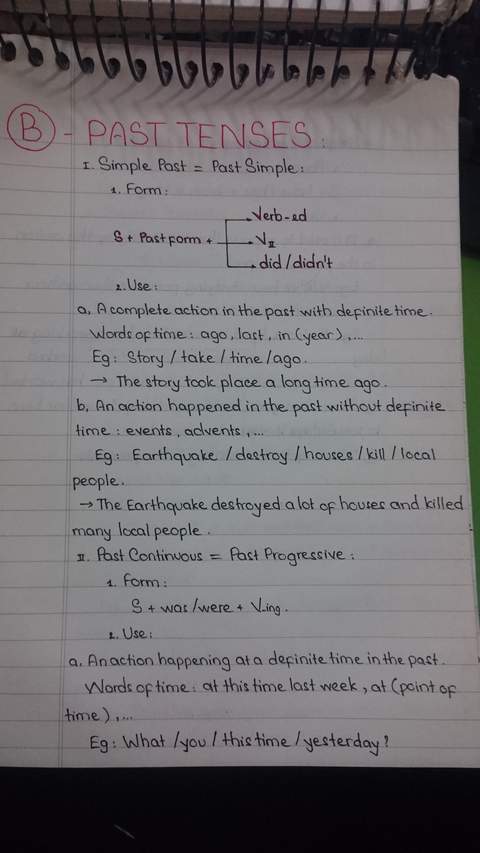 B - PAST TENSES:
I. Simple Past = Past Simple:
1. Form:
Verb-ed
S + Past form + V II
did / didn't
2. Use:
a, A complete action in the past with definite time.
Words of time: ago, last, in (year),...
Eg: Story / take / time / ago.
→ The story took place a long time ago.
b, An action happened in the past without definite
time: events, advents,...
Eg: Earthquake / destroy / houses / kill / local
people.
→ The Earthquake destroyed a lot of houses and killed
many local people.
II. Past Continuous = Past Progressive:
1. Form:
S + was/were + V-ing.
2. Use:
a, An action happening at a definite time in the past.
Words of time: at this time last week, at (point of
time),...
Eg: What / you / this time / yesterday?